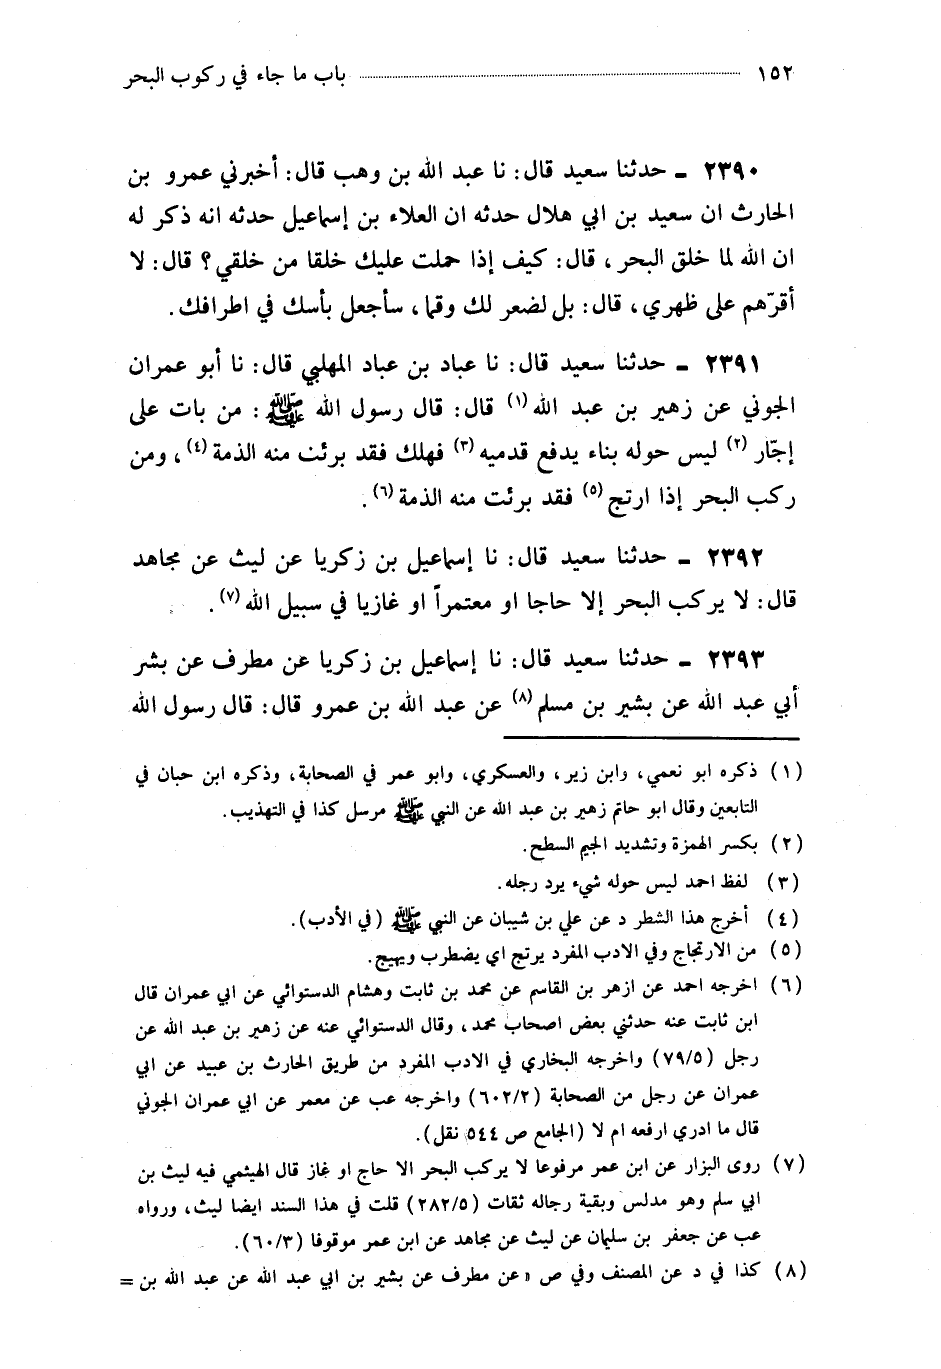 ١٥٢ ـــــــ باب ما جاء في ركوب البحر
٢٣٩٠ ـ حدثنا سعيد قال: نا عبد الله بن وهب قال: أخبرني عمرو بن
الحارث ان سعيد بن ابي هلال حدثه ان العلاء بن إسماعيل حدثه انه ذكر له
ان الله لما خلق البحر، قال: كيف إذا حملت عليك خلقا من خلقي؟ قال: لا
أقرّهم على ظهري، قال: بل لضعر لك وقما، سأجعل بأسك في اطرافك.
٢٣٩١ ـ حدثنا سعيد قال: نا عباد بن عباد المهلبي قال: نا أبو عمران
الجوني عن زهير بن عبد الله (١) قال: قال رسول الله ﷺ: من بات على
إجّار (٢) ليس حوله بناء يدفع قدميه (٣) فهلك فقد برئت منه الذمة (٤)، ومن
ركب البحر إذا ارتج (٥) فقد برئت منه الذمة (٦).
٢٣٩٢ ـ حدثنا سعيد قال: نا إسماعيل بن زكريا عن ليث عن مجاهد
قال: لا يركب البحر إلا حاجا او معتمراً او غازيا في سبيل الله (٧).
٢٣٩٣ ـ حدثنا سعيد قال: نا إسماعيل بن زكريا عن مطرف عن بشر
أبي عبد الله عن بشير بن مسلم (٨) عن عبد الله بن عمرو قال: قال رسول الله
(١) ذكره ابو نعمي، وابن زير، والعسكري، وابو عمر في الصحابة، وذكره ابن حبان في
التابعين وقال ابو حاتم زهير بن عبد الله عن النبي ﷺ مرسل كذا في التهذيب.
(٢) بكسر الهمزة وتشديد الجيم السطح.
(٣) لفظ احمد ليس حوله شيء يرد رجله.
(٤) أخرج هذا الشطر د عن علي بن شيبان عن النبي ﷺ (في الأدب).
(٥) من الارتجاج وفي الادب المفرد يرتج اي يضطرب ويهيج.
(٦) اخرجه احمد عن ازهر بن القاسم عن محمد بن ثابت وهشام الدستوائي عن ابي عمران قال
ابن ثابت عنه حدثني بعض اصحاب محمد، وقال الدستوائي عنه عن زهير بن عبد الله عن
رجل (٧٩/٥) واخرجه البخاري في الادب المفرد من طريق الحارث بن عبيد عن ابي
عمران عن رجل من الصحابة (٦٠٢/٢) واخرجه عب عن معمر عن ابي عمران الجوني
قال ما ادري ارفعه ام لا (الجامع ص ٥٤٤ نقل).
(٧) روى البزار عن ابن عمر مرفوعا لا يركب البحر الا حاج او غاز قال الهيثمي فيه ليث بن
ابي سلم وهو مدلس وبقية رجاله ثقات (٢٨٢/٥) قلت في هذا السند ايضا ليث، ورواه
عب عن جعفر بن سليمان عن ليث عن مجاهد عن ابن عمر موقوفا (٦٠/٣).
(٨) كذا في د عن المصنف وفي ص «عن مطرف عن بشير بن ابي عبد الله عن عبد الله بن =